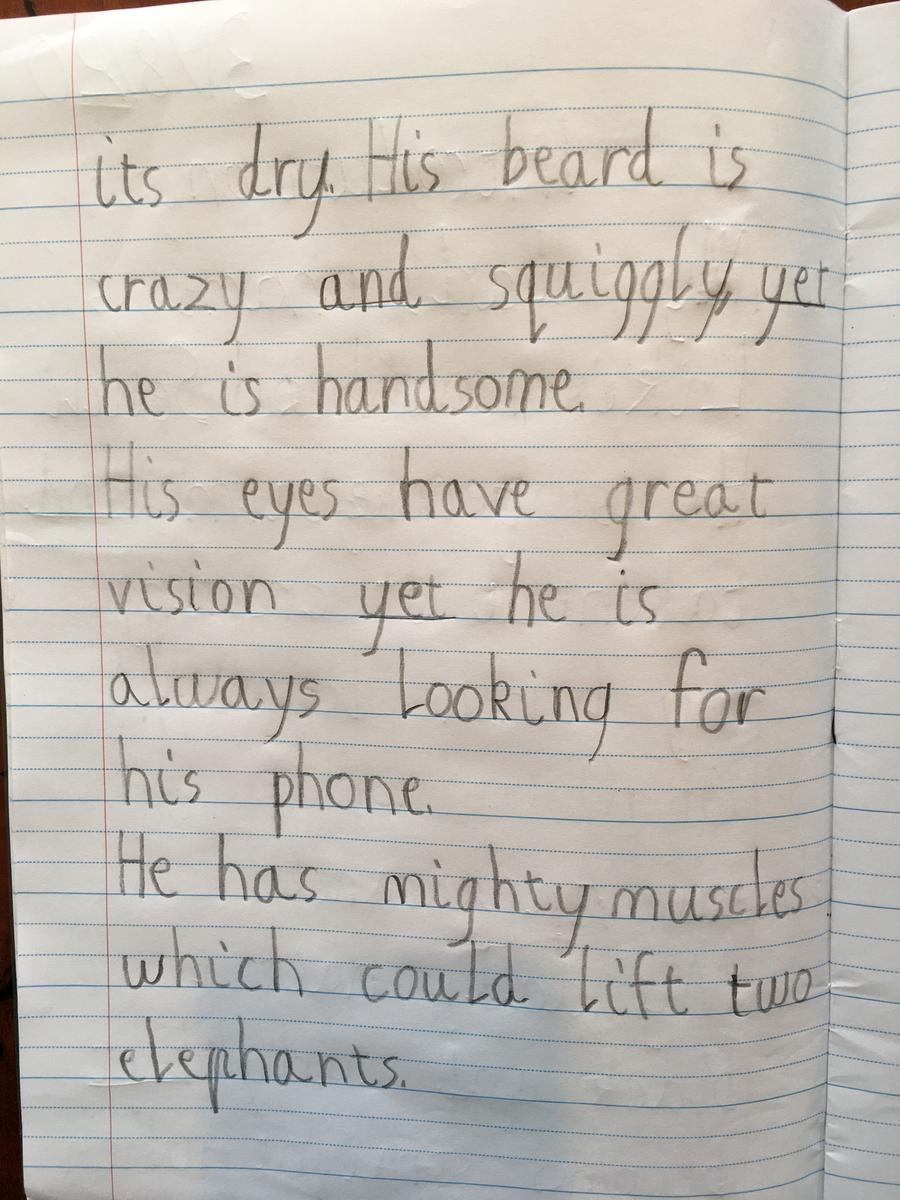 its dry. His beard is
crazy and squiggly, yet
he is handsome.
His eyes have great
vision yet he is
always looking for
his phone.
He has mighty muscles
which could lift two
elephants.